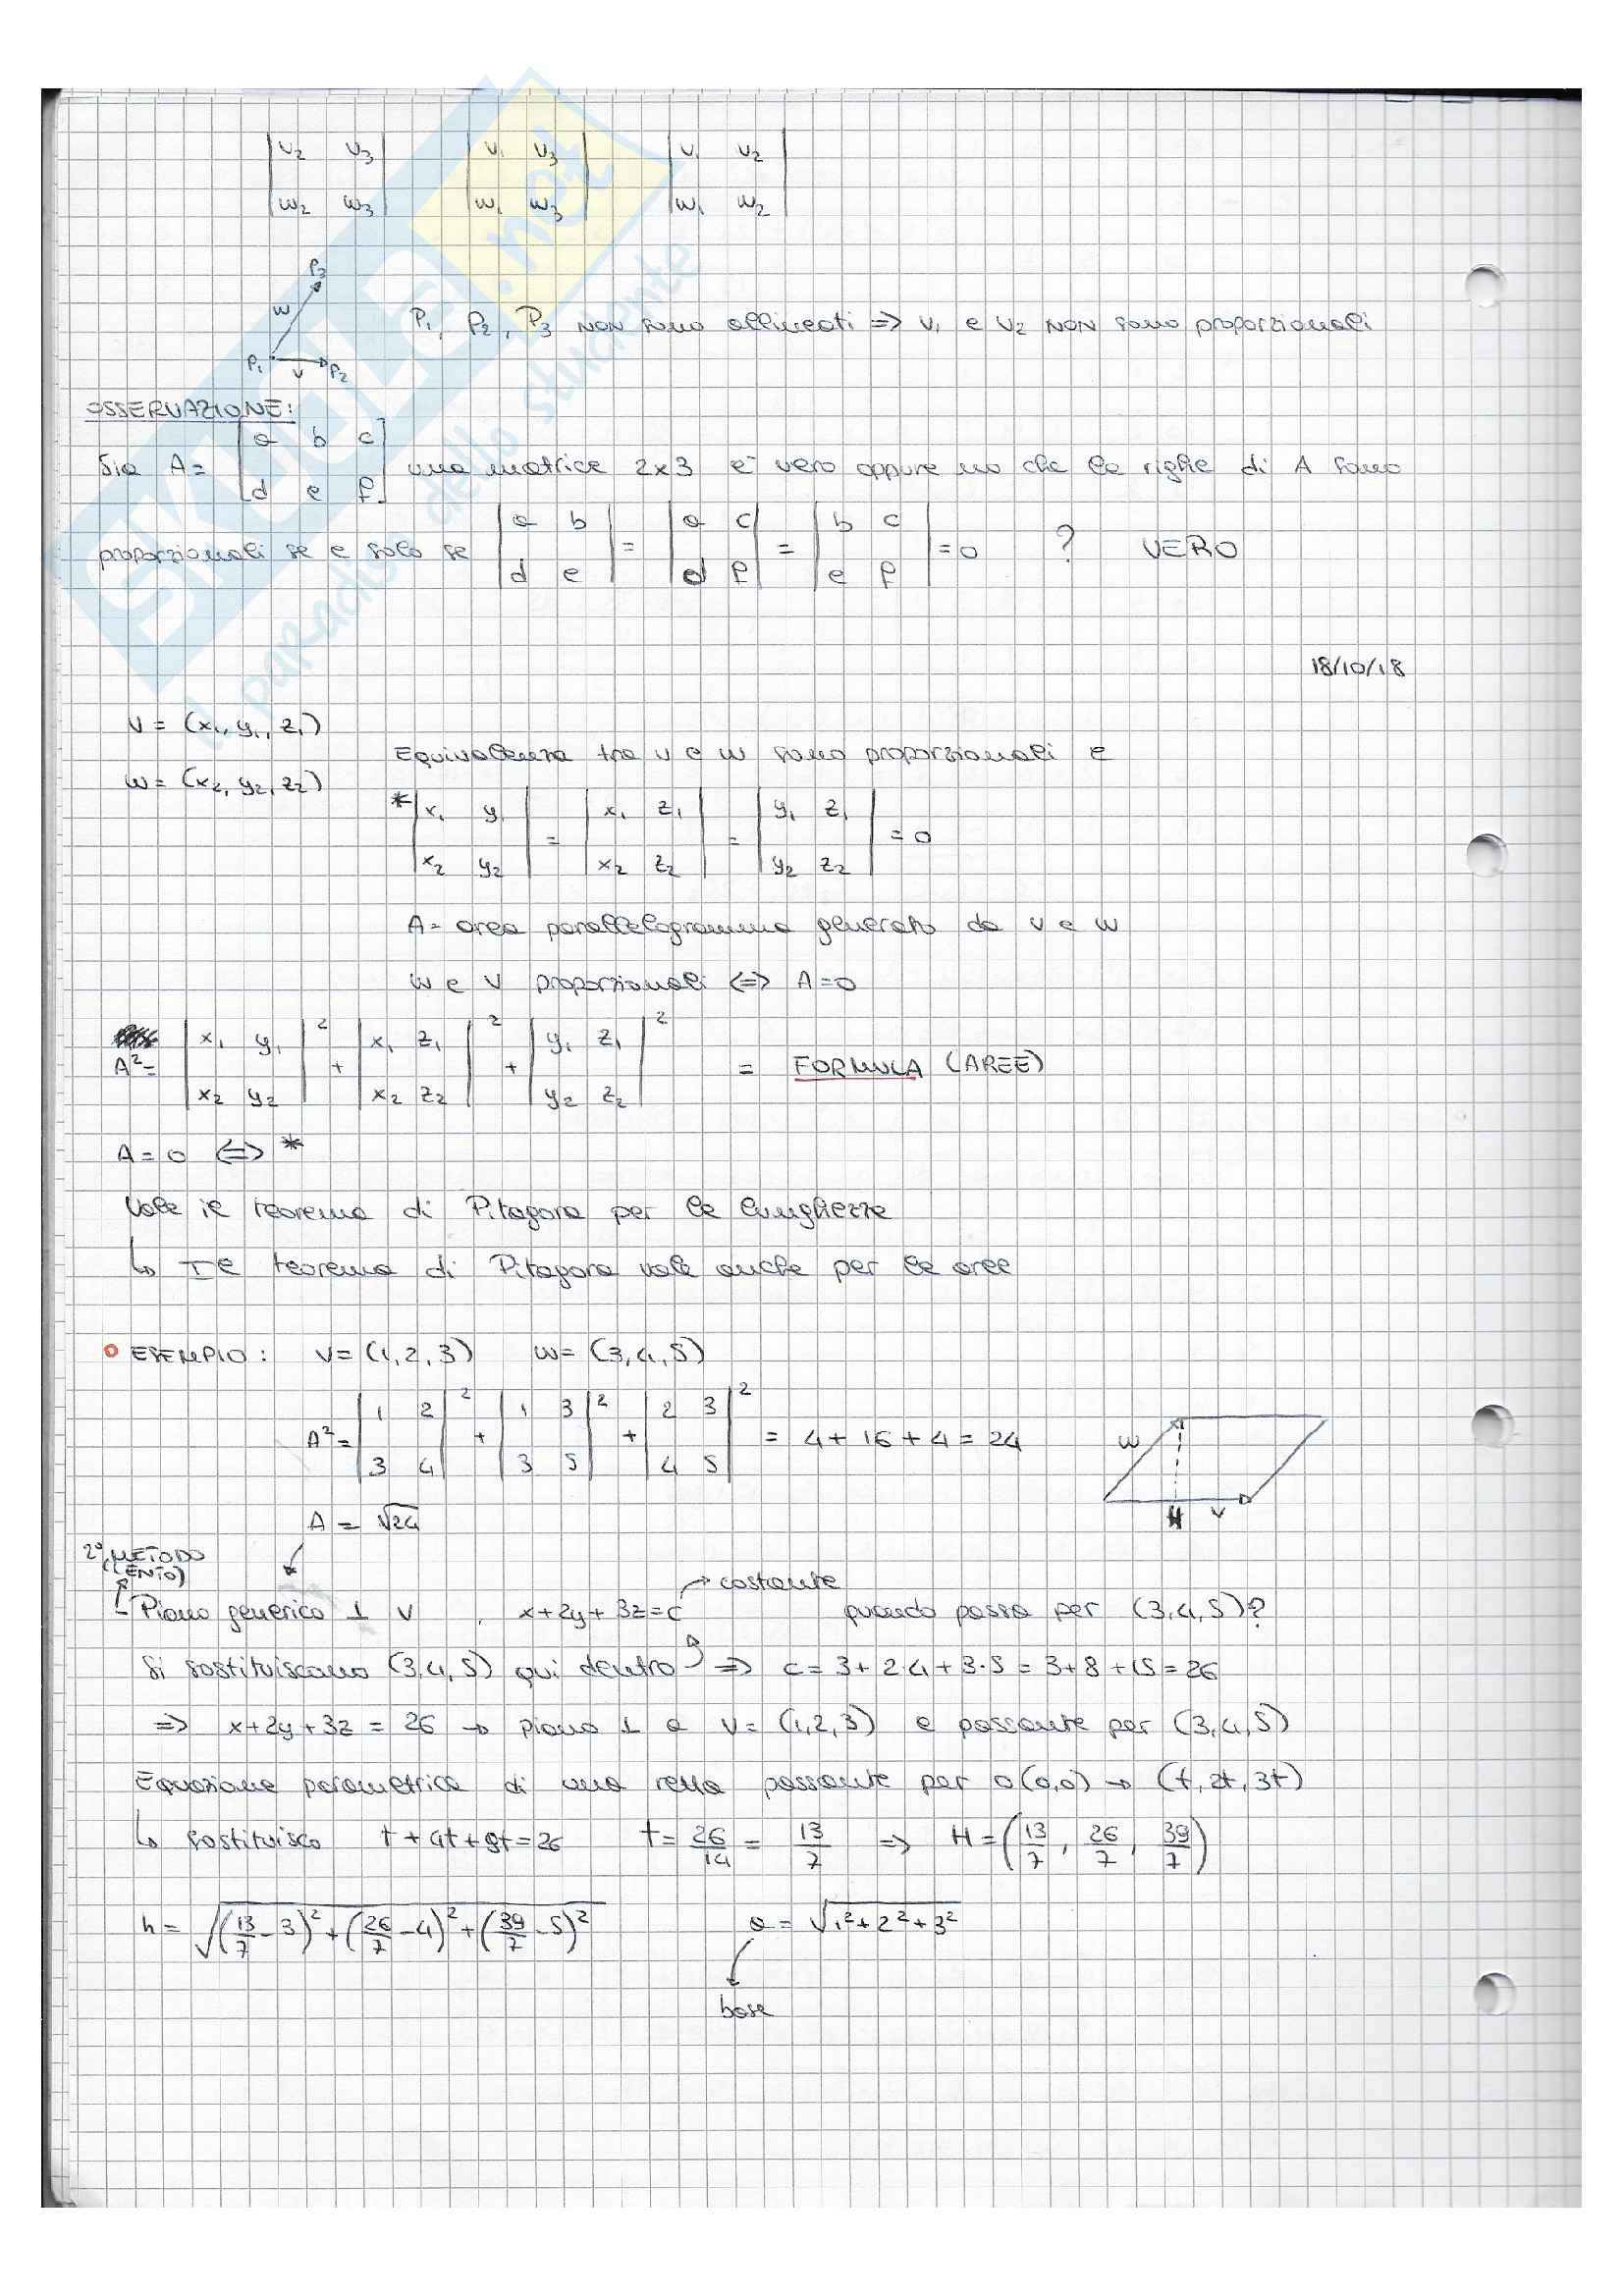 | v₂ v₃ | | v₁ v₃ | | v₁ v₂ |
| w₂ w₃ | | w₁ w₃ | | w₁ w₂ |
P₃
w
P₁, P₂, P₃ NON sono allineati => v₁ e v₂ NON sono proporzionali
P₁ v P₂
OSSERVAZIONE:
Sia A = [a b c / d e f] una matrice 2x3 è vero oppure no che le righe di A sono
proporzionali se e solo se |a b / d e| = |a c / d f| = |b c / e f| = 0 ? VERO
18/10/18
v = (x₁, y₁, z₁)
Equivalenza tra v e w sono proporzionali e
w = (x₂, y₂, z₂)
* |x₁ y₁ / x₂ y₂| = |x₁ z₁ / x₂ z₂| = |y₁ z₁ / y₂ z₂| = 0
A = area parallelogramma generato da v e w
w e v proporzionali <=> A = 0
A² = |x₁ y₁ / x₂ y₂|² + |x₁ z₁ / x₂ z₂|² + |y₁ z₁ / y₂ z₂|² = FORMULA (AREE)
A = 0 <=> *
Vale il teorema di Pitagora per le lunghezze
↳ Il teorema di Pitagora vale anche per le aree
ESEMPIO: v = (1, 2, 3) w = (3, 4, 5)
A² = |1 2 / 3 4|² + |1 3 / 3 5|² + |2 3 / 4 5|² = 4 + 16 + 4 = 24
w
H v
A = √24
2° METODO
(LENTO)
→ costante
Piano generico ⊥ v , x + 2y + 3z = c quando passa per (3, 4, 5)?
Si sostituiscono (3, 4, 5) qui dentro => c = 3 + 2·4 + 3·5 = 3 + 8 + 15 = 26
=> x + 2y + 3z = 26 → piano ⊥ a v = (1, 2, 3) e passante per (3, 4, 5)
Equazione parametrica di una retta passante per O(0,0) → (t, 2t, 3t)
↳ sostituisco t + 4t + 9t = 26 t = 26/14 = 13/7 => H = (13/7, 26/7, 39/7)
h = √((13/7 - 3)² + (26/7 - 4)² + (39/7 - 5)²) a = √(1² + 2² + 3²)
base
SKUOLA.net
il paradiso dello studente